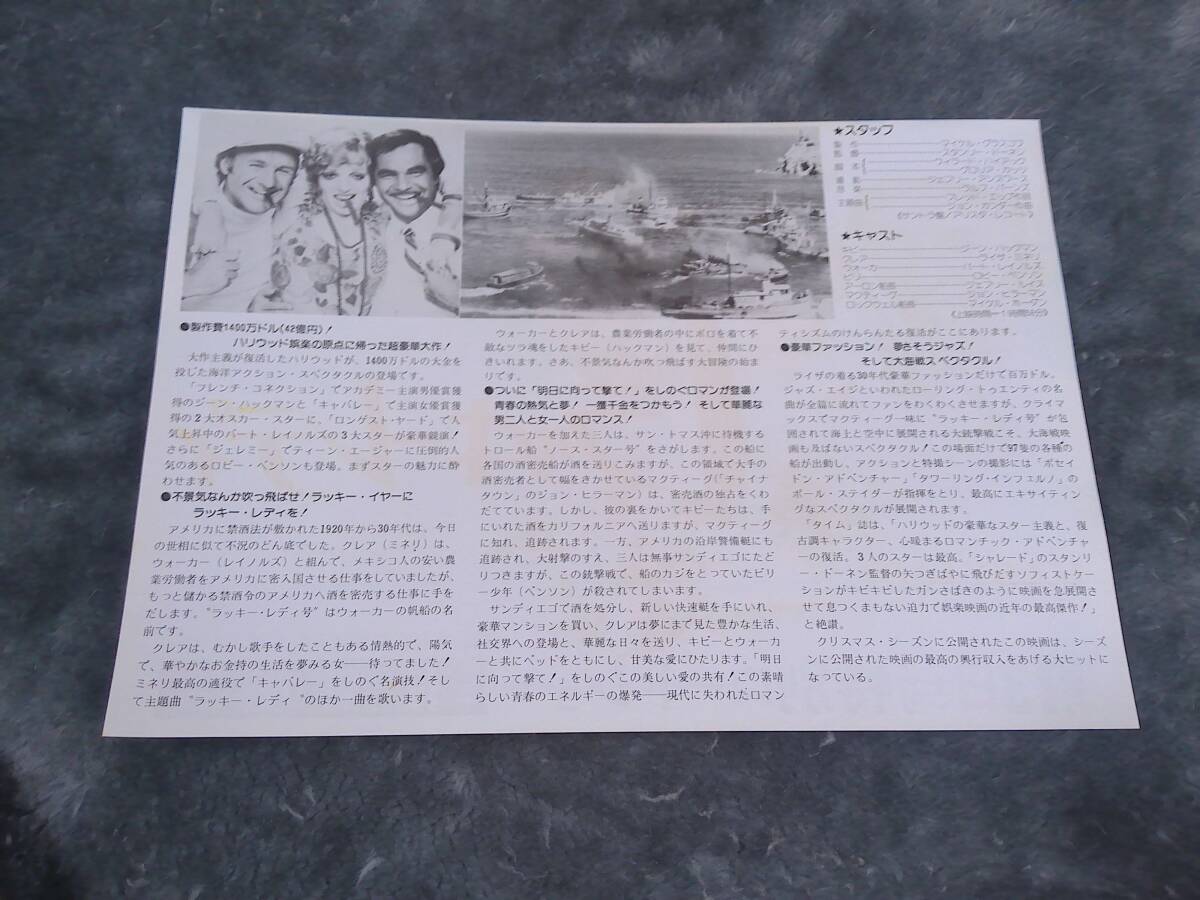 ★スタッフ
製作 マイケル・グラスコフ
監督 スタンリー・ドーネン
脚本 ウィラード・ハイアック
グロリア・カッツ
撮影 ジェフリー・アンスワース
音楽 ラルフ・バーンズ
主題曲 フレッド・エッブ作詞
ジョン・カンダー作曲
《サントラ盤／アリスタ・レコード》
★キャスト
キビー ジーン・ハックマン
クレア ライザ・ミネリ
ウォーカー バート・レイノルズ
ビリー ロビー・ベンソン
アーロン船長
マクティーグ ジョン・ヒラーマン
ロックウェル船長 マイケル・ホーダン
●製作費1400万ドル(42億円)！
ハリウッド娯楽の原点に帰った超豪華大作！
大作主義が復活したハリウッドが、1400万ドルの大金を
投じた海洋アクション・スペクタクルの登場です。
「フレンチ・コネクション」でアカデミー主演男優賞獲
得のジーン・ハックマンと「キャバレー」で主演女優賞獲
得の2大オスカー・スターに、「ロンゲスト・ヤード」で人
気上昇中のバート・レイノルズの3大スターが豪華競演！
さらに「ジェレミー」でティーン・エージャーに圧倒的人
気のあるロビー・ベンソンも登場。まずスターの魅力に酔
わせます。
●不景気なんか吹っ飛ばせ！ラッキー・イヤーに
ラッキー・レディを！
アメリカに禁酒法が敷かれた1920年から30年代は、今日
の世相に似て不況のどん底でした。クレア（ミネリ）は、
ウォーカー（レイノルズ）と組んで、メキシコ人の安い農
業労働者をアメリカに密入国させる仕事をしていましたが、
もっと儲かる禁酒令のアメリカへ酒を密売する仕事に手を
だします。“ラッキー・レディ号”はウォーカーの帆船の名
前です。
クレアは、むかし歌手をしたこともある情熱的で、陽気
で、華やかなお金持の生活を夢みる女――待ってました！
ミネリ最高の適役で「キャバレー」をしのぐ名演技！そし
て主題曲“ラッキー・レディ”のほか一曲を歌います。
ウォーカーとクレアは、農業労働者の中にボロを着て不
敵なツラ魂をしたキビー（ハックマン）を見て、仲間にひ
きいれます。さあ、不景気なんか吹っ飛ばす大冒険の始ま
りです。
●ついに「明日に向って撃て！」をしのぐロマンが登場！
青春の熱気と夢！一獲千金をつかもう！そして華麗な
男二人と女一人のロマンス！
ウォーカーを加えた三人は、サン・トマス沖に待機する
トロール船“ノース・スター号”をさがします。この船に
各国の酒密売船が酒を送りこみますが、この領域で大手の
酒密売者として幅をきかせているマクティーグ（「チャイナ
タウン」のジョン・ヒラーマン）は、密売酒の独占をくわ
だてています。しかし、彼の裏をかいてキビーたちは、手
にいれた酒をカリフォルニアへ送りますが、マクティーグ
に知れ、追跡されます。一方、アメリカの沿岸警備艇にも
追跡され、大射撃のすえ、三人は無事サンディエゴにたど
りつきますが、この銃撃戦で、船のカジをとつていたビリ
ー少年（ベンソン）が殺されてしまいます。
サンディエゴで酒を処分し、新しい快速艇を手にいれ、
豪華マンションを買い、クレアは夢にまで見た豊かな生活、
社交界への登場と、華麗な日々を送り、キビーとウォーカ
ーと共にベッドをともにし、甘美な愛にひたります。「明日
に向って撃て！」をしのぐこの美しい愛の共有！この素晴
らしい青春のエネルギーの爆発――現代に失われたロマン
ティシズムのけんらんたる復活がここにあります。
●豪華ファッション！夢さそうジャズ！
そして大海戦スペクタクル！
ライザの着る30年代豪華ファッションだけで百万ドル。
ジャズ・エイジといわれたローリング・トゥエンティの名
曲が全篇に流れてファンをわくわくさせますが、クライマ
ックスでマクティーグ一味に“ラッキー・レディ号”が包
囲されて海上と空中に展開される大銃撃戦こそ、大海戦映
画も及ばないスペクタクル！この場面だけで97隻の各種の
船が出動し、アクションと特撮シーンの撮影には「ポセイ
ドン・アドベンチャー」「タワーリング・インフェルノ」の
ポール・ステイダーが指揮をとり、最高にエキサイティン
グなスペクタクルが展開されます。
「タイム」誌は、「ハリウッドの豪華なスター主義と、復
古調キャラクター、心暖まるロマンチック・アドベンチャ
ーの復活。3人のスターは最高。「シャレード」のスタンリ
ー・ドーネン監督の矢つぎばやに飛びだすソフィストケー
ションがキビキビしたガンさばきのように映画を急展開さ
せて息つくまもない迫力で娯楽映画の近年の最高傑作！」
と絶讃。
クリスマス・シーズンに公開されたこの映画は、シーズ
ンに公開された映画の最高の興行収入をあげる大ヒットに
なっている。